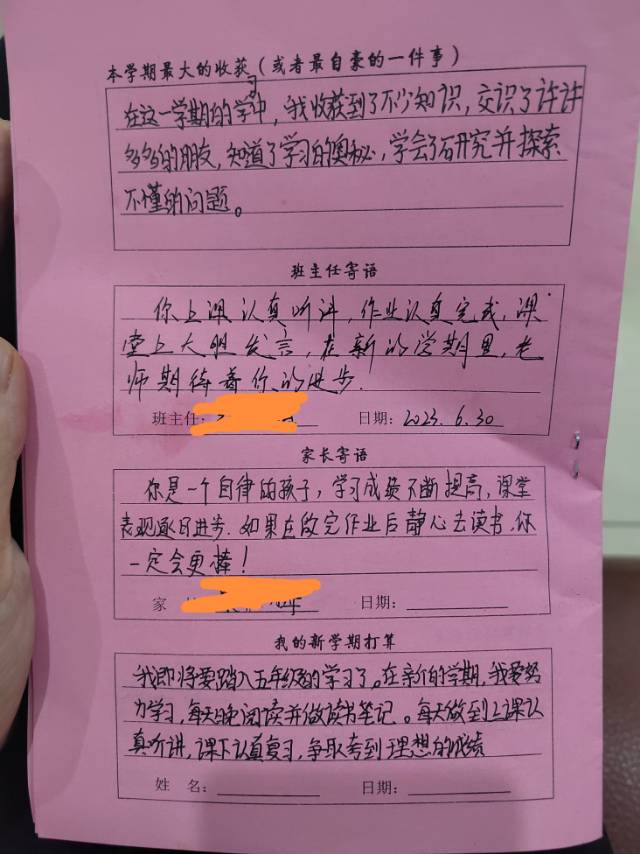 本学期最大的收获(或者最自豪的一件事)
在这一学期的学中,我收获到了不少知识,交识了许许
习
多多的朋友,知道了学习的奥秘,学会了研究并探索
不懂的问题。
班主任寄语
你上课认真听讲,作业认真完成,课
堂上大胆发言,在新的学期里,老
师期待着你的进步.
班主任: 日期:2023.6.30
家长寄语
你是一个自律的孩子,学习成绩不断提高,课堂
表现逐日进步.如果在做完作业后静心去读书.你
一定会更棒!
家 日期:
我的新学期打算
我即将要踏入五年级的学习了。在新的学期,我要努
力学习,每天阅读并做读书笔记。每天做到上课认
真听讲,课下认真复习,争取考到理想的成绩
姓 名: 日期: